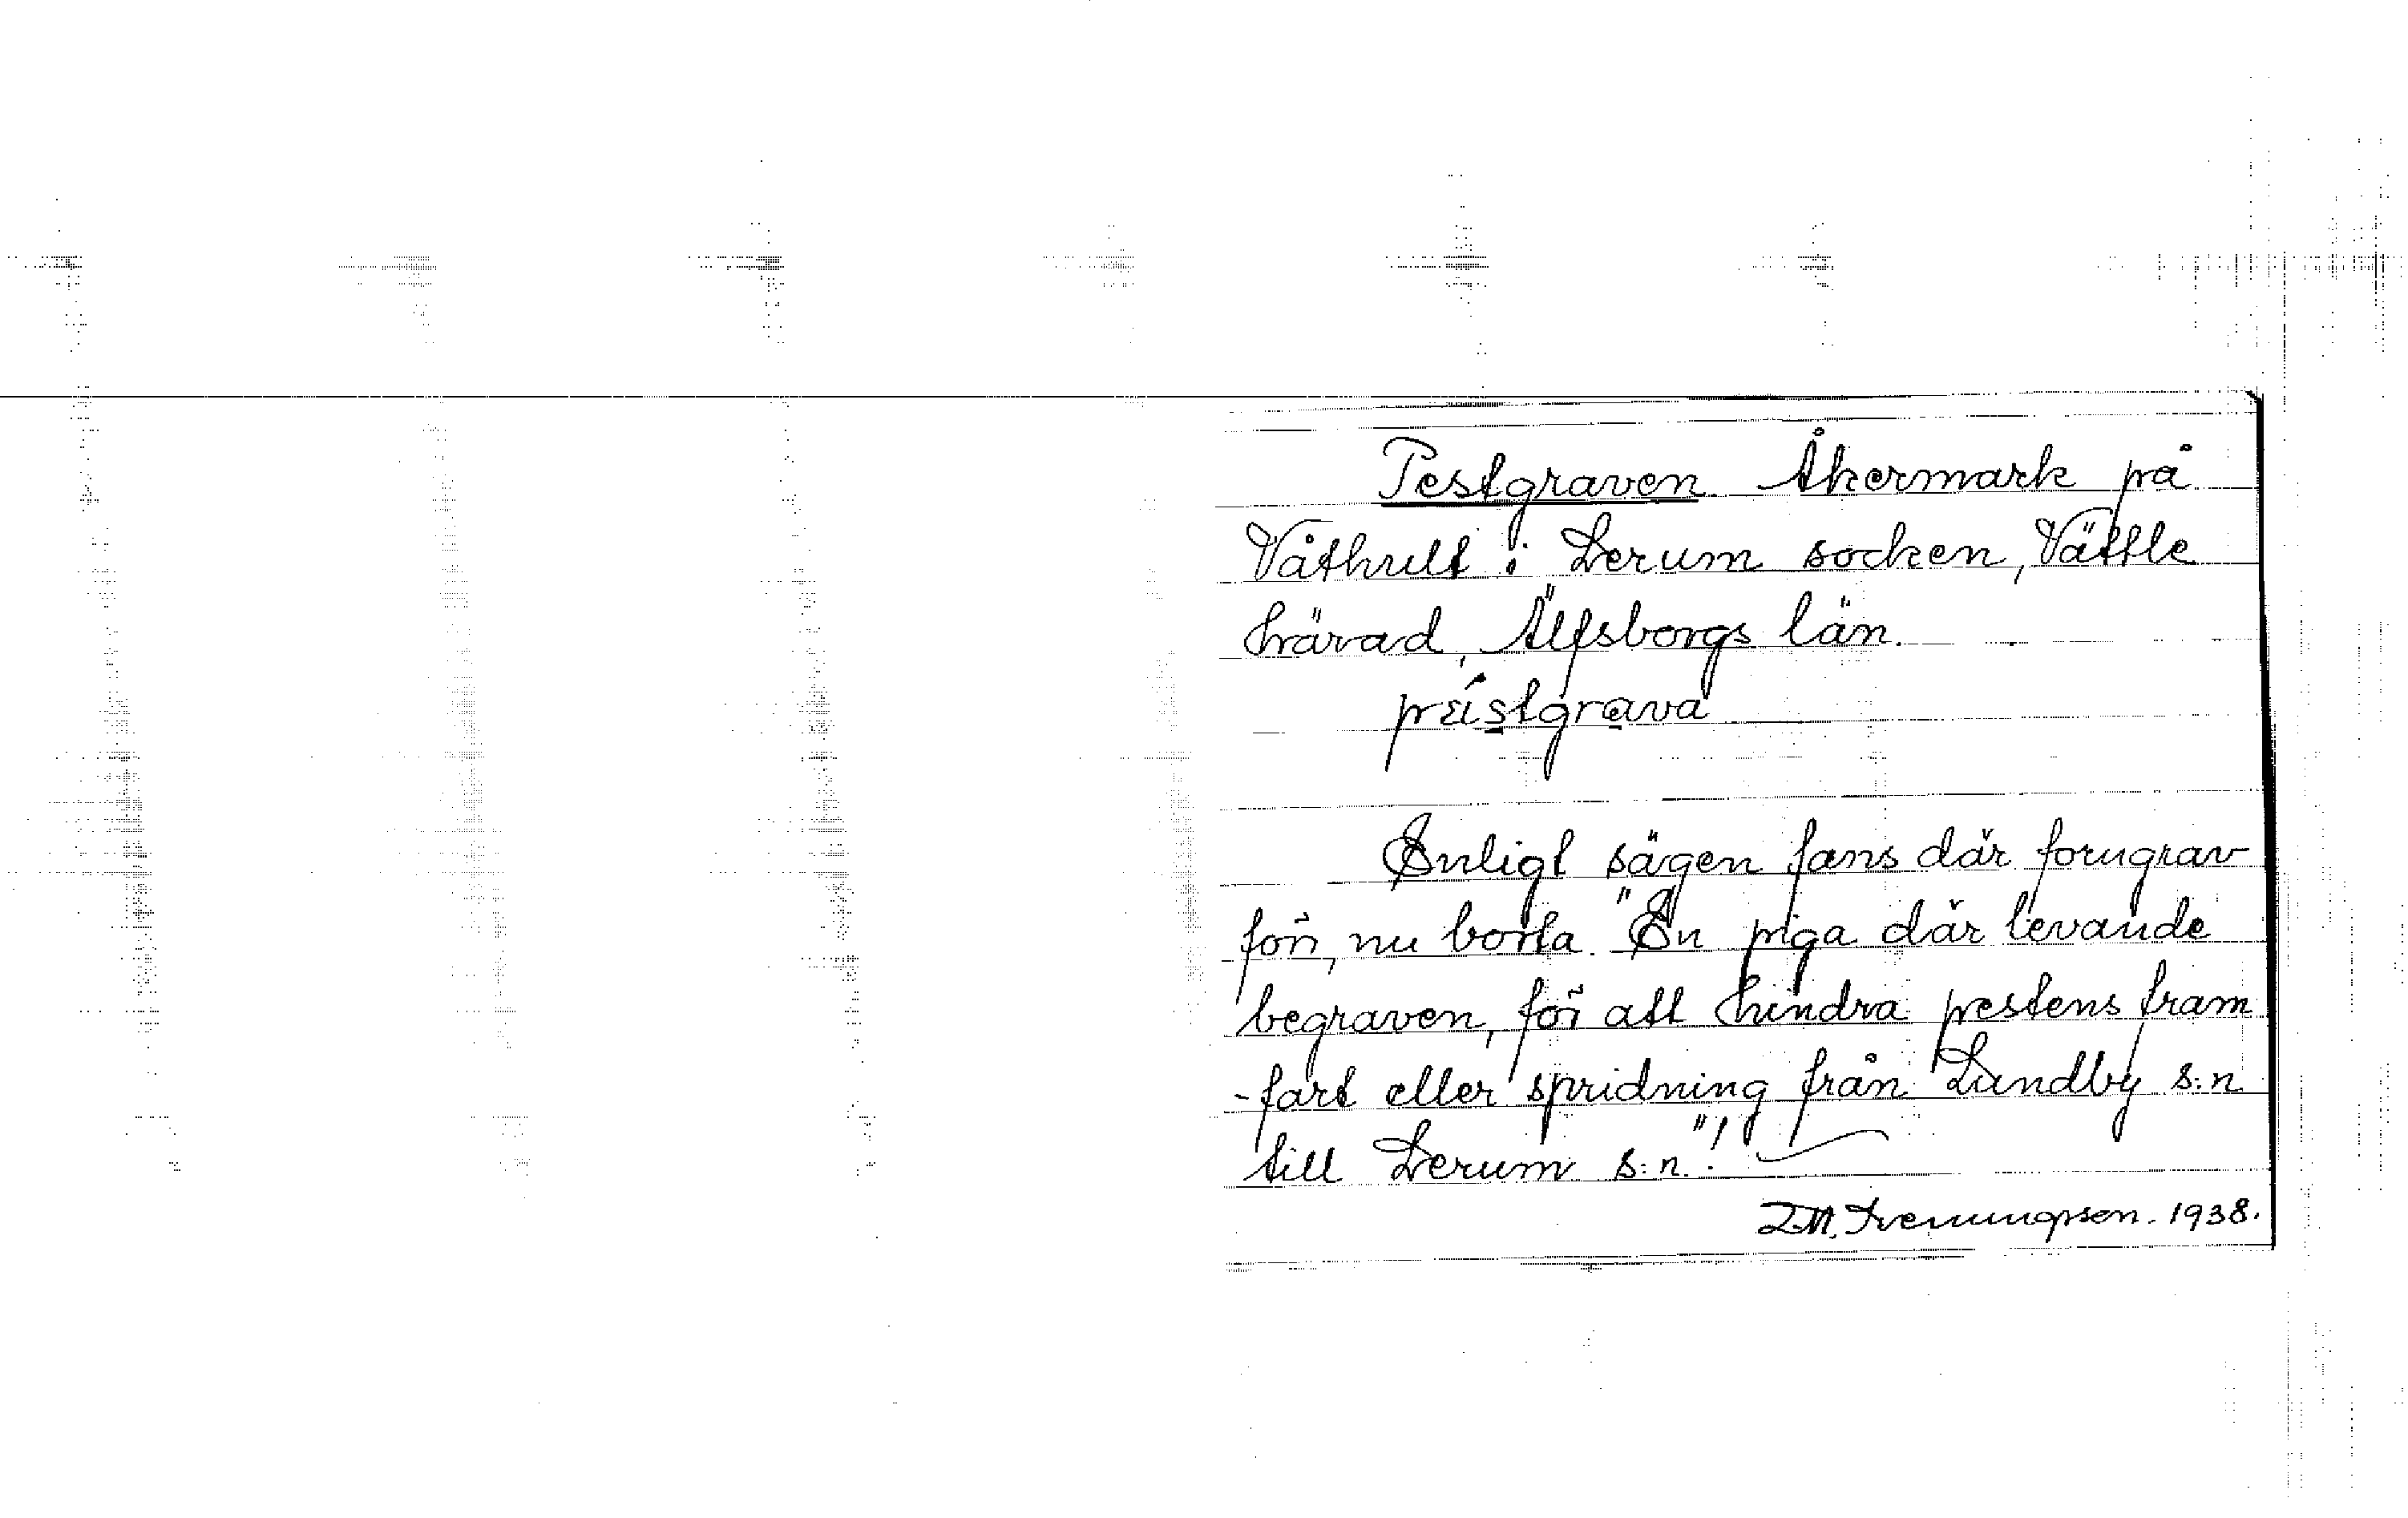 Pestgraven. Åkermark på
Våthult i Lerum socken, Vättle
härad, Älfsborgs län.
pästgrava
Enligt sägen fans där forngrav
förr, nu borta. "En piga där levande
begraven, för att hindra pestens fram
-fart eller spridning från Lundby s:n
till Lerum s:n."!
1938.